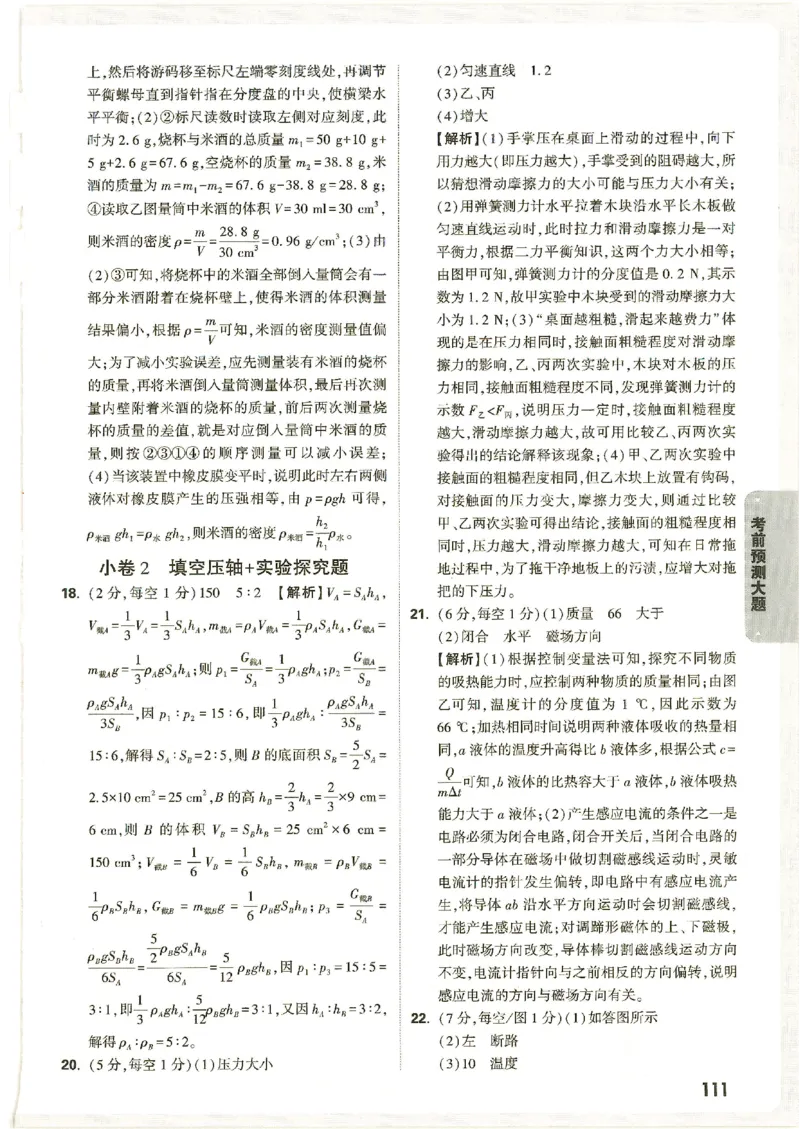 上,然后将游码移至标尺左端零刻度线处,再调节
平衡螺母直到指针指在分度盘的中央,使横梁水
平平衡;(2)②标尺读数时读取左侧对应刻度,此
时为 2.6 g,烧杯与米酒的总质量 m₁=50 g+10 g+
5 g+2.6 g=67.6 g,空烧杯的质量 m₂=38.8 g,米
酒的质量为 m=m₁-m₂=67.6 g-38.8 g=28.8 g;
④读取乙图量筒中米酒的体积 V=30 ml=30 cm³,
则米酒的密度 ρ=m/V=28.8 g/30 cm³=0.96 g/cm³;(3)由
(2)③可知,将烧杯中的米酒全部倒入量筒会有一
部分米酒附着在烧杯壁上,使得米酒的体积测量
结果偏小,根据 ρ=m/V可知,米酒的密度测量值偏
大;为了减小实验误差,应先测量装有米酒的烧杯
的质量,再将米酒倒入量筒测量体积,最后再次测
量内壁附着米酒的烧杯的质量,前后两次测量烧
杯的质量的差值,就是对应倒入量筒中米酒的质
量,则按②③①④的顺序测量可以减小误差;
(4)当该装置中橡皮膜变平时,说明此时左右两侧
液体对橡皮膜产生的压强相等,由 p=ρgh 可得,
ρ米酒 gh₁=ρ水 gh₂,则米酒的密度 ρ米酒=h₂/h₁ρ水。
小卷 2 填空压轴+实验探究题
18. (2 分,每空 1 分)150 5∶2 【解析】V_A=S_Ah_A,
V截A=1/3V_A=1/3S_Ah_A,m截A=ρ_AV截A=1/3ρ_AS_Ah_A,G截A=
m截Ag=1/3ρ_AgS_Ah_A;则 p₁=G截A/S_A=1/3ρ_Agh_A;p₂=G截A/S_B=
ρ_AgS_Ah_A/3S_B,因 p₁∶p₂=15∶6,即1/3ρ_Agh_A∶ρ_AgS_Ah_A/3S_B=
15∶6,解得 S_A∶S_B=2∶5,则 B 的底面积 S_B=5/2S_A=
2.5×10 cm²=25 cm²,B 的高 h_B=2/3h_A=2/3×9 cm=
6 cm,则 B 的体积 V_B=S_Bh_B=25 cm²×6 cm=
150 cm³;V截B=1/6V_B=1/6S_Bh_B,m截B=ρ_BV截B=
1/6ρ_BS_Bh_B,G截B=m截Bg=1/6ρ_BgS_Bh_B;p₃=G截B/S_A=
ρ_BgS_Bh_B/6S_A=5/2ρ_BgS_Ah_B/6S_A=5/12ρ_Bgh_B,因 p₁∶p₃=15∶5=
3∶1,即1/3ρ_Agh_A∶5/12ρ_Bgh_B=3∶1,又因 h_A∶h_B=3∶2,
解得 ρ_A∶ρ_B=5∶2。
20. (5 分,每空 1 分)(1)压力大小
(2)匀速直线 1.2
(3)乙、丙
(4)增大
【解析】(1)手掌压在桌面上滑动的过程中,向下
用力越大(即压力越大),手掌受到的阻碍越大,所
以猜想滑动摩擦力的大小可能与压力大小有关;
(2)用弹簧测力计水平拉着木块沿水平长木板做
匀速直线运动时,此时拉力和滑动摩擦力是一对
平衡力,根据二力平衡知识,这两个力大小相等;
由图甲可知,弹簧测力计的分度值是 0.2 N,其示
数为 1.2 N,故甲实验中木块受到的滑动摩擦力大
小为 1.2 N;(3)“桌面越粗糙,滑起来越费力”体
现的是在压力相同时,接触面粗糙程度对滑动摩
擦力的影响,乙、丙两次实验中,木块对木板的压
力相同,接触面粗糙程度不同,发现弹簧测力计的
示数 F乙<F丙,说明压力一定时,接触面粗糙程度
越大,滑动摩擦力越大,故可用比较乙、丙两次实
验得出的结论解释该现象;(4)甲、乙两次实验中
接触面的粗糙程度相同,但乙木块上放置有钩码,
对接触面的压力变大,摩擦力变大,则通过比较
甲、乙两次实验可得出结论,接触面的粗糙程度相
同时,压力越大,滑动摩擦力越大,可知在日常拖
地过程中,为了拖干净地板上的污渍,应增大对拖
把的下压力。
21. (6 分,每空 1 分)(1)质量 66 大于
(2)闭合 水平 磁场方向
【解析】(1)根据控制变量法可知,探究不同物质
的吸热能力时,应控制两种物质的质量相同;由图
乙可知,温度计的分度值为 1 ℃,因此示数为
66 ℃;加热相同时间说明两种液体吸收的热量相
同,a 液体的温度升高得比 b 液体多,根据公式 c=
Q/mΔt可知,b 液体的比热容大于 a 液体,b 液体吸热
能力大于 a 液体;(2)产生感应电流的条件之一是
电路必须为闭合电路,闭合开关后,当闭合电路的
一部分导体在磁场中做切割磁感线运动时,灵敏
电流计的指针发生偏转,即电路中有感应电流产
生,将导体 ab 沿水平方向运动时会切割磁感线,
才能产生感应电流;对调蹄形磁体的上、下磁极,
此时磁场方向改变,导体棒切割磁感线运动方向
不变,电流计指针向与之前相反的方向偏转,说明
感应电流的方向与磁场方向有关。
22. (7 分,每空/图 1 分)(1)如答图所示
(2)左 断路
(3)10 温度
考前预测大题
111